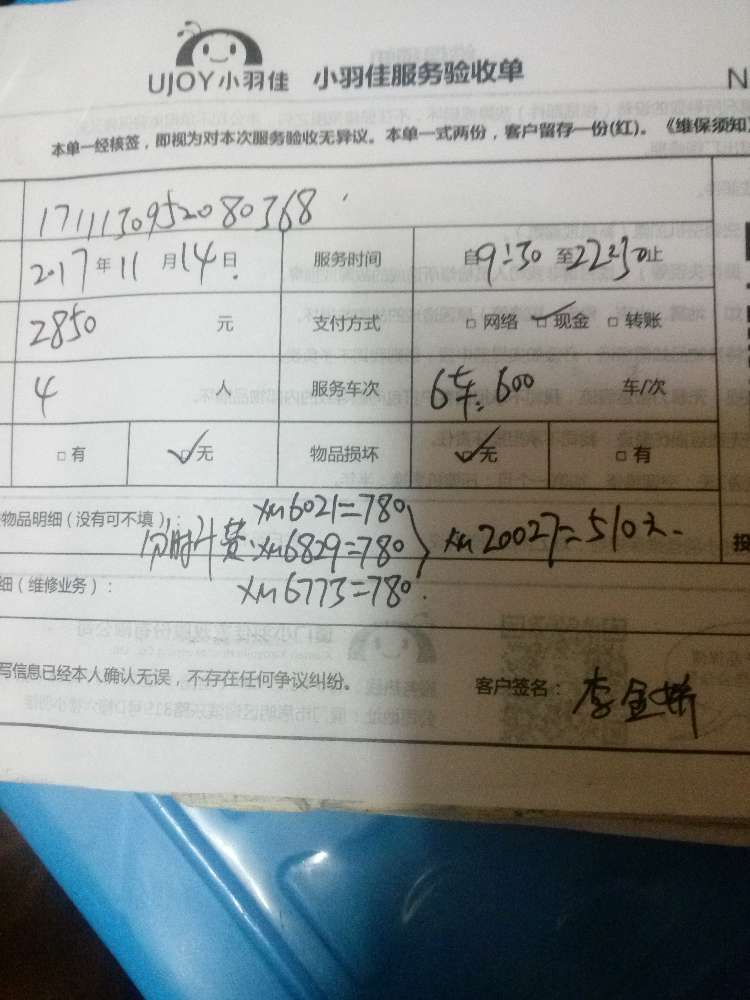 UJOY小羽佳 小羽佳服务验收单
N
本单一经核签，即视为对本次服务验收无异议。本单一式两份，客户留存一份(红)。《维保须知
1711130952080368
2017年11月14日 服务时间 自9:30至22:30止
2850 元 支付方式 □网络 ☑现金 □转账
4 人 服务车次 6车:600 车/次
□有 ☑无 物品损坏 ☑无 □有
物品明细（没有可不填）：
XM6021=780
分时计费:XM6829=780 XM20027=510元
XM6773=780
细（维修业务）：
写信息已经本人确认无误，不存在任何争议纠纷。 客户签名：李金娇